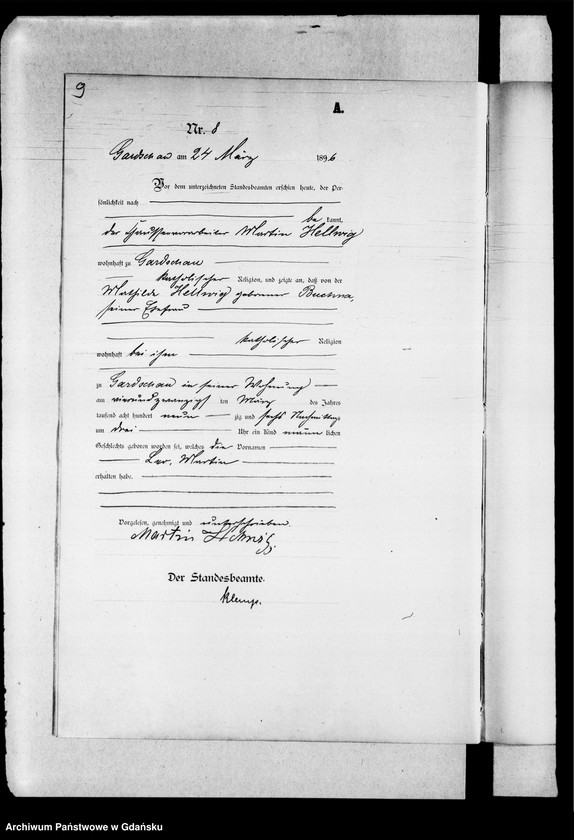 9
A.
Nr. 8
Gardschau am 24 März 1896
Vor dem unterzeichneten Standesbeamten erschien heute, der Per-
sönlichkeit nach
be kannt,
der Chausseearbeiter Martin Hellwig
wohnhaft zu Gardschau
katholischer Religion, und zeigte an, daß von der
Mathilde Hellwig geborener Buchna,
seiner Ehefrau
katholischer Religion
wohnhaft bei ihm
zu Gardschau in seiner Wohnung
am vierundzwanzigsten März des Jahres
tausend acht hundert neun zig und sechs Nachmittags
um drei Uhr ein Kind männlichen
Geschlechts geboren worden sei, welches die Vornamen
Leo, Martin
erhalten habe.
Vorgelesen, genehmigt und unterschrieben.
Martin
Der Standesbeamte.
Archiwum Państwowe w Gdańsku